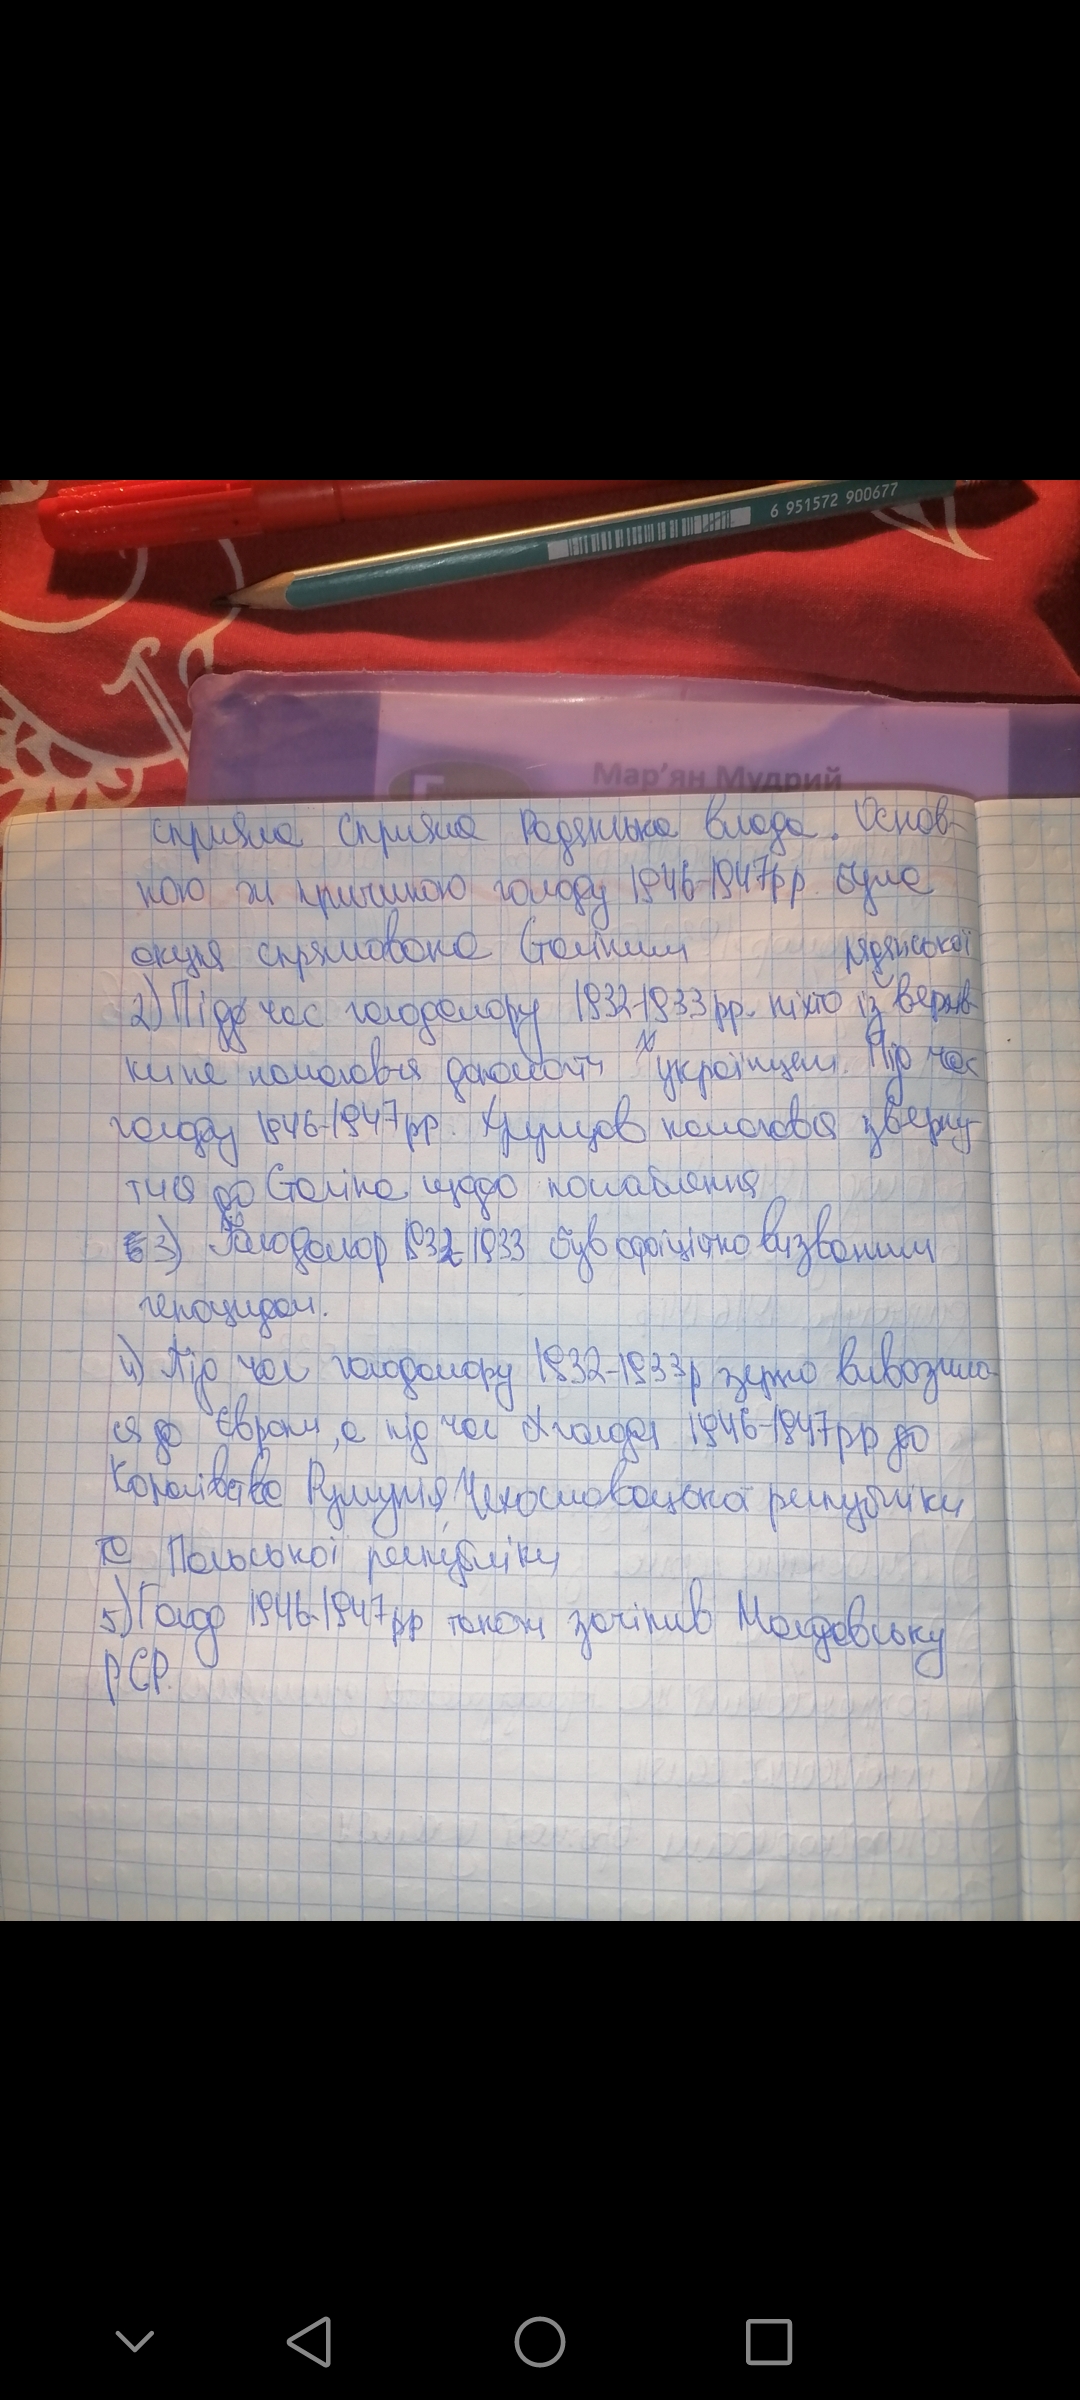 6 951572 900677
Мар'ян Мудрий
сприяла сприяла Радянська влада. Основ-
ною ж причиною голоду 1946-1947рр. була
спрямована Сталіним
радянської
2) Під час голодомору 1932-1933рр. ніхто із верхів-
ки не намагався допомогти українцям. Під час
голоду 1946-1947рр. Хрущов намагався зверну-
тися до Сталіна щодо послаблення
3) Голодомор 1932-1933 був офіційно визваним
геноцидом.
4) Під час голодомору 1932-1933р зерно вивозило-
ся до Європи, а під час голоду 1946-1947рр до
Королівства Румунія, Чехословацької республіки
та Польської республіки
5) Голод 1946-1947рр також зачіпив Молдовську
РСР.